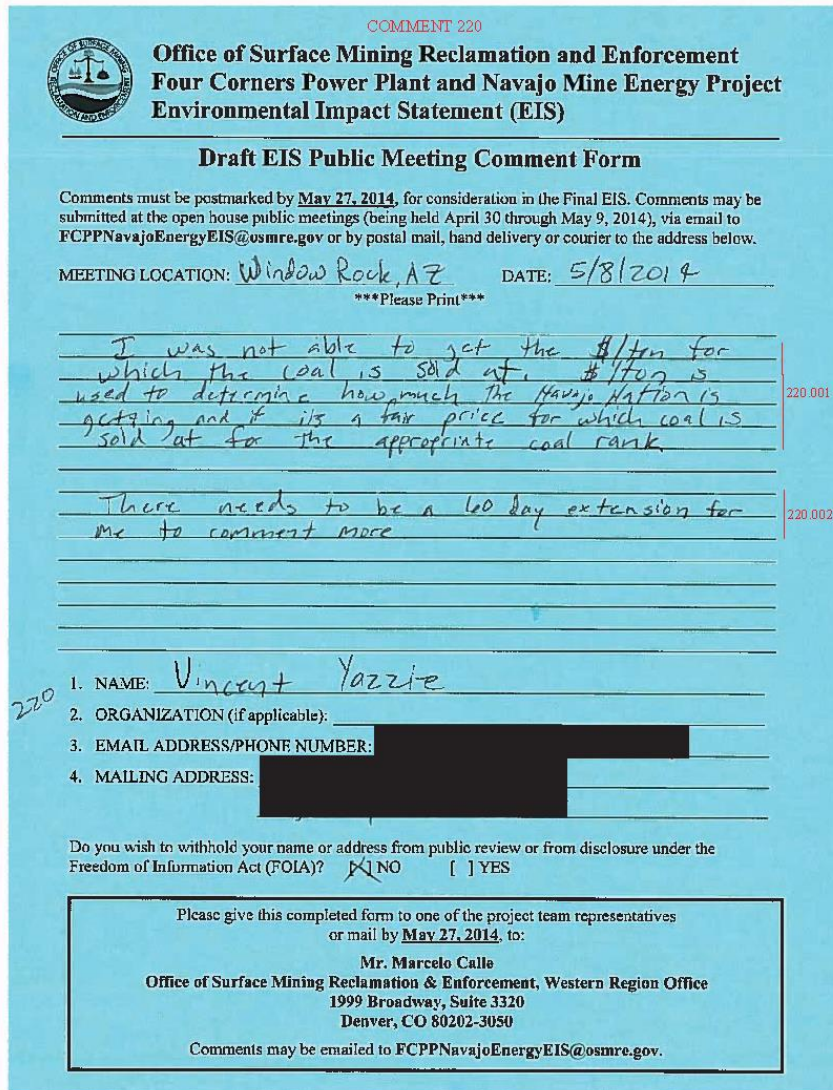 COMMENT 220
Office of Surface Mining Reclamation and Enforcement
Four Corners Power Plant and Navajo Mine Energy Project
Environmental Impact Statement (EIS)
Draft EIS Public Meeting Comment Form
Comments must be postmarked by May 27, 2014, for consideration in the Final EIS. Comments may be
submitted at the open house public meetings (being held April 30 through May 9, 2014), via email to
FCPPNavajoEnergyEIS@osmre.gov or by postal mail, hand delivery or courier to the address below.
MEETING LOCATION: Window Rock, AZ DATE: 5/8/2014
***Please Print***
I was not able to get the $/ton for
which the coal is sold at. $/ton is
used to determine how much the Navajo Nation is
getting and if its a fair price for which coal is
sold at for the appropriate coal rank
220.001
There needs to be a 60 day extension for
me to comment more
220.002
220
1. NAME: Vincent Yazzie
2. ORGANIZATION (if applicable):
3. EMAIL ADDRESS/PHONE NUMBER:
4. MAILING ADDRESS:
Do you wish to withhold your name or address from public review or from disclosure under the
Freedom of Information Act (FOIA)? [X] NO [ ] YES
Please give this completed form to one of the project team representatives
or mail by May 27, 2014, to:
Mr. Marcelo Calle
Office of Surface Mining Reclamation & Enforcement, Western Region Office
1999 Broadway, Suite 3320
Denver, CO 80202-3050
Comments may be emailed to FCPPNavajoEnergyEIS@osmre.gov.